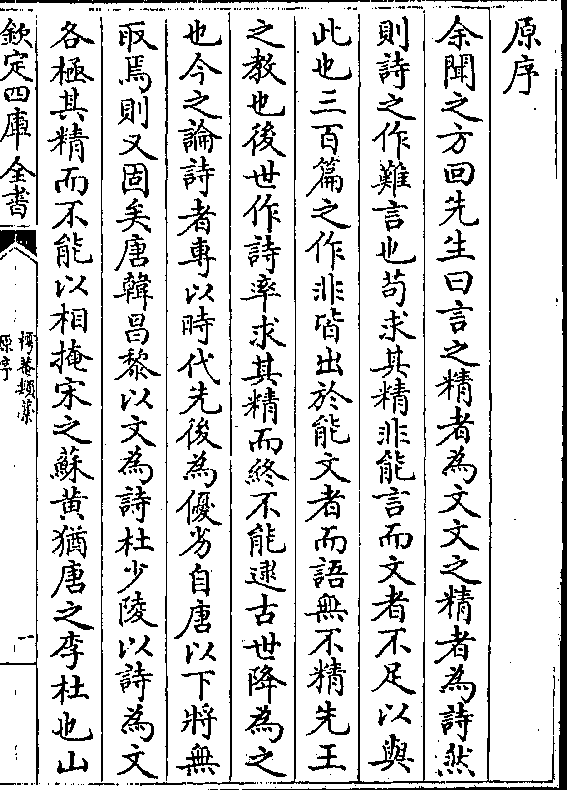 原序
余聞之方回先生曰言之精者為文文之精者為詩然
則詩之作難言也苟求其精非能言而文者不足以與
此也三百篇之作非皆出於能文者而語無不精先王
之教也後世作詩率求其精而終不能逮古世降為之
也今之論詩者專以時代先後為優劣自唐以下將無
取焉則又固矣唐韓昌黎以文為詩杜少陵以詩為文
各極其精而不能以相掩宋之蘇黄猶唐之李杜也山
欽定四庫全書
樗菴類藁
原序
一